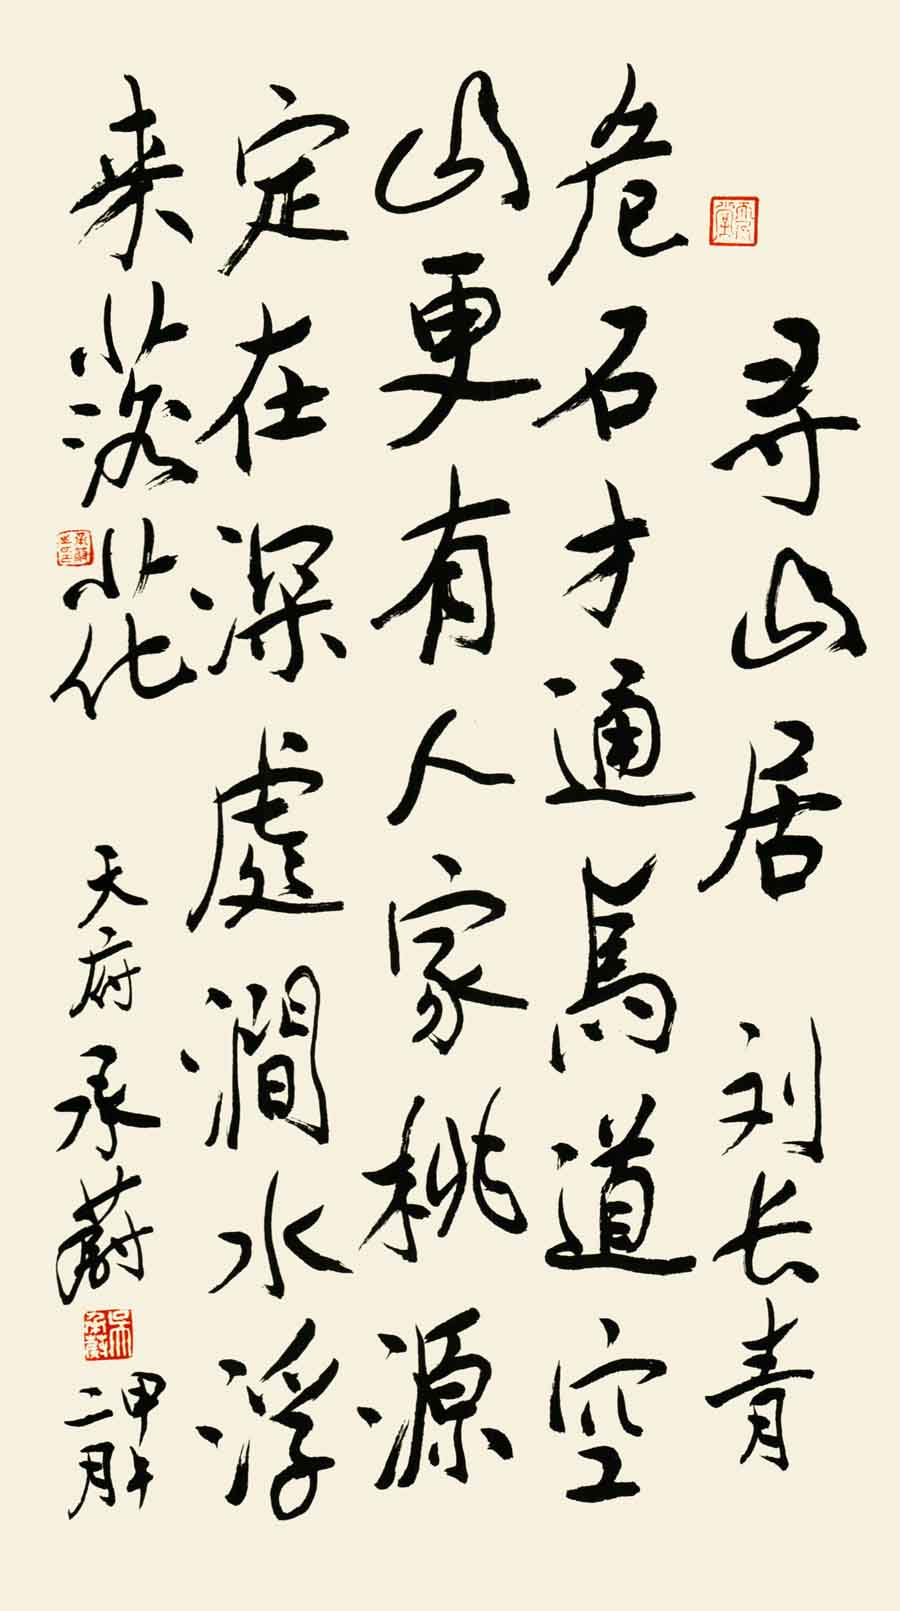 寻山居 刘长青
危石才通鳥道空
山更有人家桃源
定在深處澗水浮
来落花
天府承蔚
甲午
二月